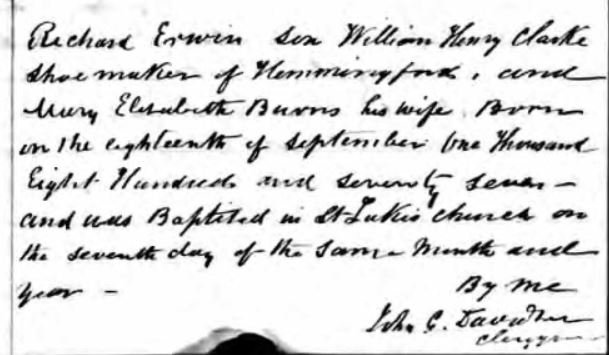 Richard Erwin son William Henry Clarke
Shoemaker of Hemmingford, and
Mary Elisabeth Burns his wife Born
on the eighteenth of September One Thousand
Eight Hundred and seventy seven –
and was Baptised in St Luke's church on
the seventh day of the same Month and
year –
By me
John C. Davidson
Clergyman